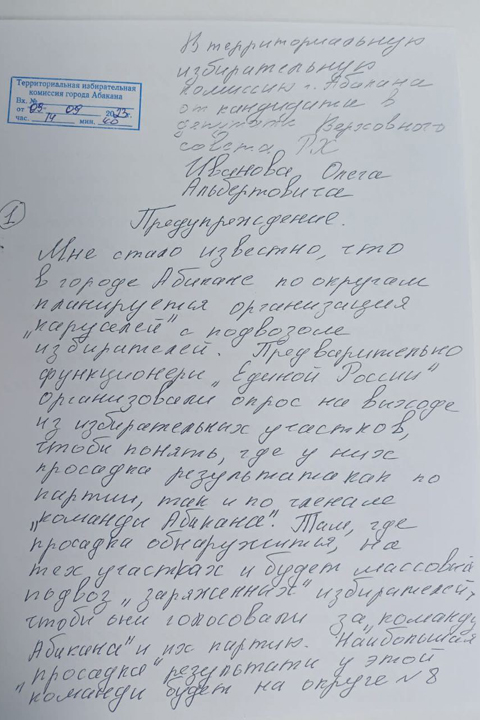 В территориальную
избирательную
комиссию г. Абакана
от кандидата в
депутаты Верховного
совета РХ
Иванова Олега
Альбертовича
Территориальная избирательная
комиссия города Абакана
Вх. №
от 09 09 2023 г.
час. 14 мин. 40
1
Предупреждение.
Мне стало известно, что
в городе Абакане по округам
планируется организация
„каруселей" с подвозом
избирателей. Предварительно
функционеры „Единой России"
организовали опрос на выходе
из избирательных участков,
чтобы понять, где у них
просадка результата как по
партии, так и по членам
„команды Абакана". Там, где
просадка обнаружится, на
тех участках и будет массовый
подвоз „заряженных" избирателей,
чтобы они голосовали за „команду
Абакана" и их партию. Наибольшая
„просадка" результаты у этой
команды будет на округе №8